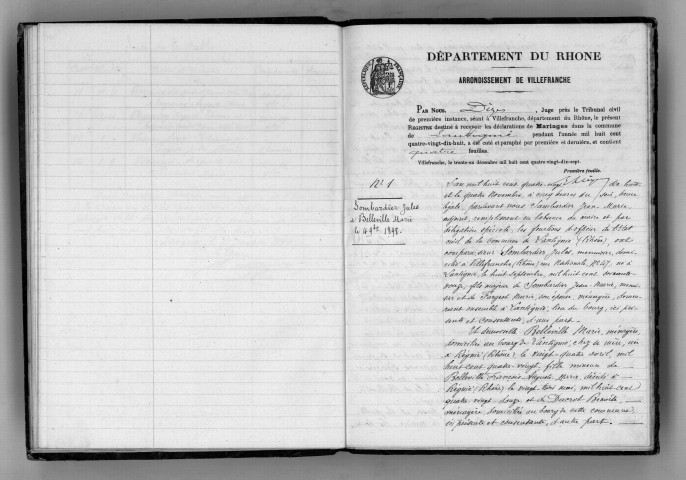 DÉPARTEMENT DU RHONE
ARRONDISSEMENT DE VILLEFRANCHE
PAR NOUS, Dizes, Juge près le Tribunal civil
de première instance, séant à Villefranche, département du Rhône, le présent
REGISTRE destiné à recevoir les déclarations de Mariages dans la commune
de Lantignié pendant l'année mil huit cent
quatre-vingt-dix-huit, a été coté et paraphé par première et dernière, et contient
quatre feuilles.
Villefranche, le trente-un décembre mil huit cent quatre-vingt-dix-sept.
Première feuille.
N° 1
Sombardier Jules
& Belleville Marie
le 4 9bre 1898.
L'an mil huit cent quatre-vingt dix huit
et le quatre Novembre, à cinq heures du soir, heure
légale, pardevant nous Sombardier Jean Marie,
adjoint, remplissant en l'absence du maire et par
délégation spéciale les fonctions d'officier de l'état
civil de la commune de Lantignié (Rhône), ont
comparu sieur Sombardier Jules, menuisier, domi-
cilié à Villefranche (Rhône) rue Nationale N° 47, né à
Lantignié, le huit Septembre, mil huit cent soixante
fils majeur de Sombardier Jean Marie, menui-
sier et de Marie, son épouse, ménagère, demeu-
rant ensemble à Lantignié, lieu du bourg, ici pré-
sents et consentants, d'une part.
Et demoiselle Belleville Marie, ménagère,
domiciliée au bourg de Lantignié, chez sa mère, née
à Régnié (Rhône) le vingt-quatre avril, mil
huit cent quatre-vingt, fille mineure de
Belleville François Auguste Marie, décédé à
Régnié (Rhône) le vingt trois mai, mil huit cent
quatre-vingt-douze, et de Ducrot Benoîte,
ménagère, domiciliée au bourg de cette commune
ici présente et consentante, d'autre part.